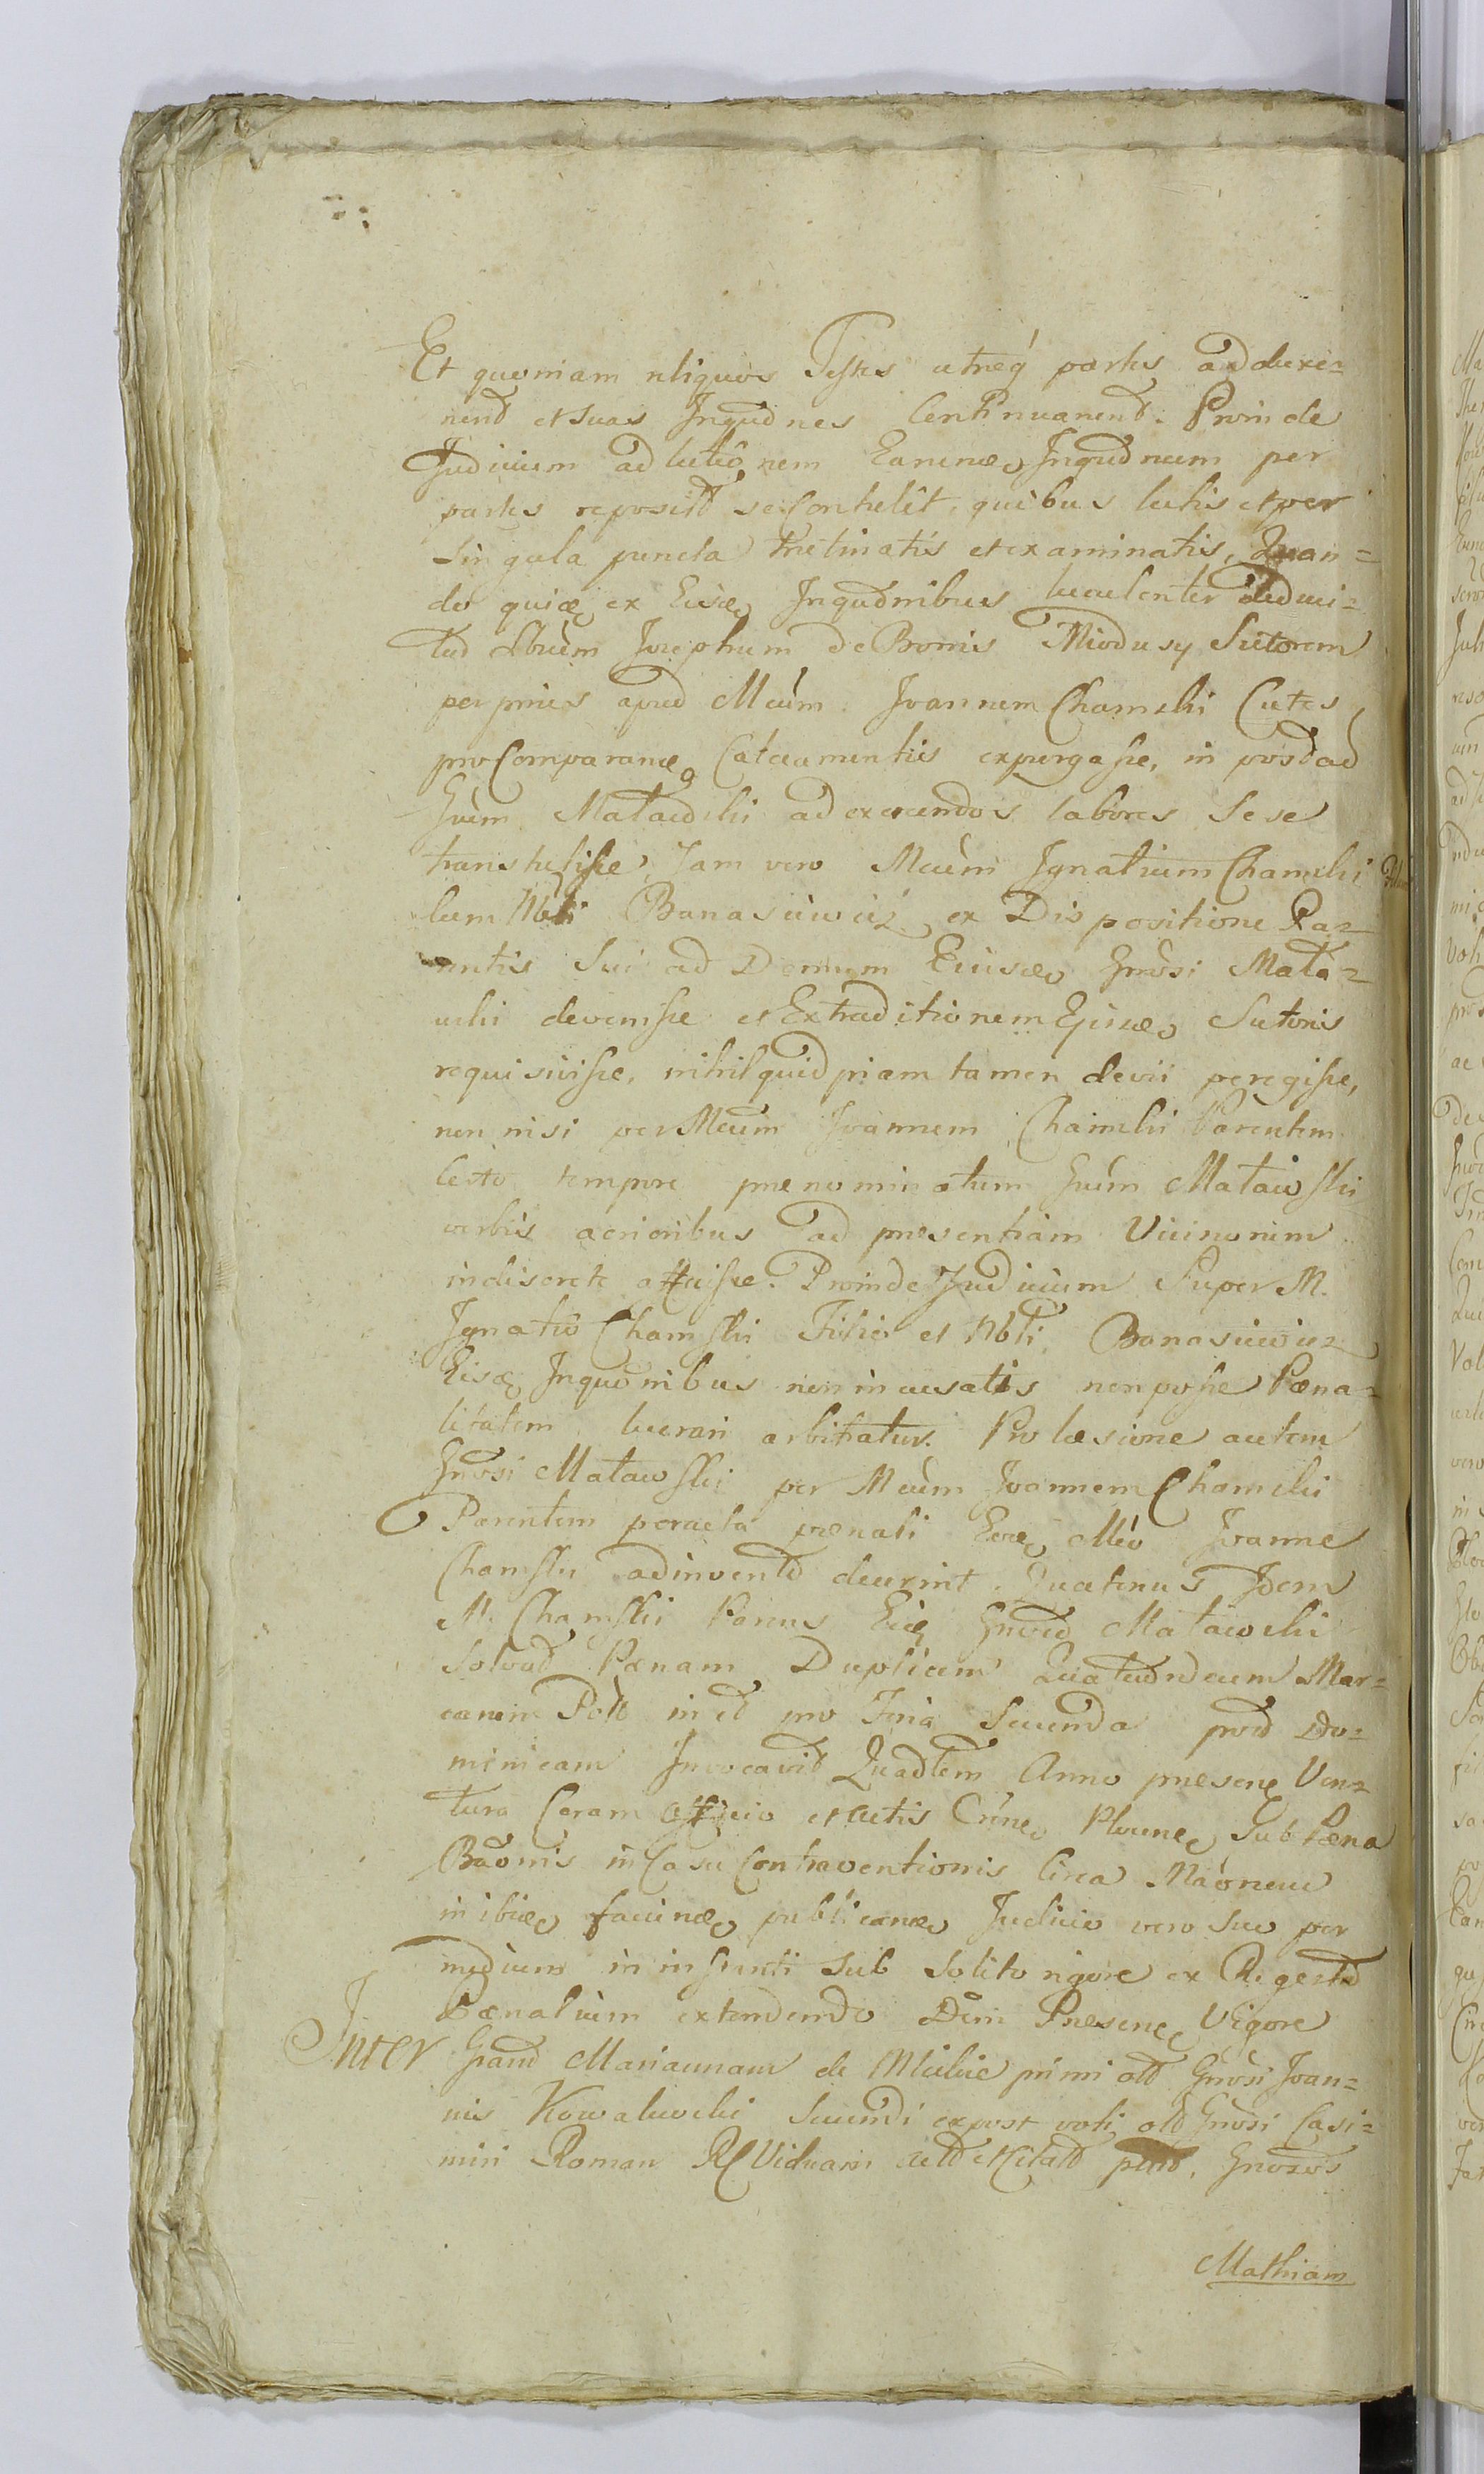 Et quoniam reliquos Testes utreq partes adduxe=
rend et suas Inquōnes Continuarend. Proinde
Judicium ad lectiōnem Earunde Inquōnum per
partes reposit se Contulit, quibus lectis et per
Singula puncta trutinatis et examinatis, Quan=
do quide ex Eisde Inquōnibus luculenter deduci=
tur Josephum de Bonis Miodusy Sutorem
per prius apud Mcum Joannem Chamski Cutes
pro Comparande Calceamentis expurgasse, in post ad
Gnum Mataw ski ad exercendos labores Sese
transtulisse, Jam vero Mcum Ignatium Chamski
Cum Nbli Banasiewicz ex Dispositione Pa=
rentis Sui ad Domum Eiusde Gnosi Mata=
wski devenisse et Extraditionem Ejusde Sutoris
requisivisse, nihil quidpiam tamen devii peregisse,
non nisi per Mcum Joannem Chamski Parentem
Certo tempore prenominatum Gnum Matawski
verbis acrioribus ad presentiam Vicinorum
indiscrete affecisse. Proinde Judicium Super M.
Ignatio Chamski Filio et Nbli Banasiewicz
Eisde Inquōnibus non incusatis non posse Pœna=
litatem luerari arbitratur. Pro læsione autem
Gnosi Matawski per Mcum Joannem Chamski
Parentem peracta pœnali Eode Mco Joanne
Chamski adinvent decernit. Quatenus Idem
M. Chamski Parens Eide Gnoso Matawski
Solvat Pœnam Duplicem Quatuordecim Mar=
carum Poll in et pro Feria Secunda post Do=
minicam Invocavit Quadlem Anno presene Ven=
tura Coram Officio et Actis Sub Pœna
Bāonis in Casu Contraventionis Circa
inibide faciende publicande Judicio vero Suo per
medium inserenti Sub Solito rigore ex Regest
Pœnalium extendendo Dem Presene Vigore
Inter Gnam Mariannam de primi olt Gnosi Joan=
nis Kowalewski Secundi expost voti olt Gnosi Casi=
miri Roman Viduam act et Citat Gnosos
Mathiam